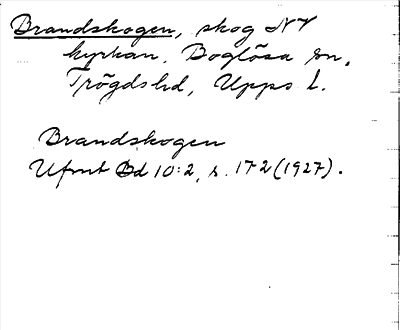 Brandskogen, skog NV
kyrkan, Boglösa sn,
Trögds hd, Upps l.
Brandskogen
Ufmt Bd 10:2, s. 172 (1927).